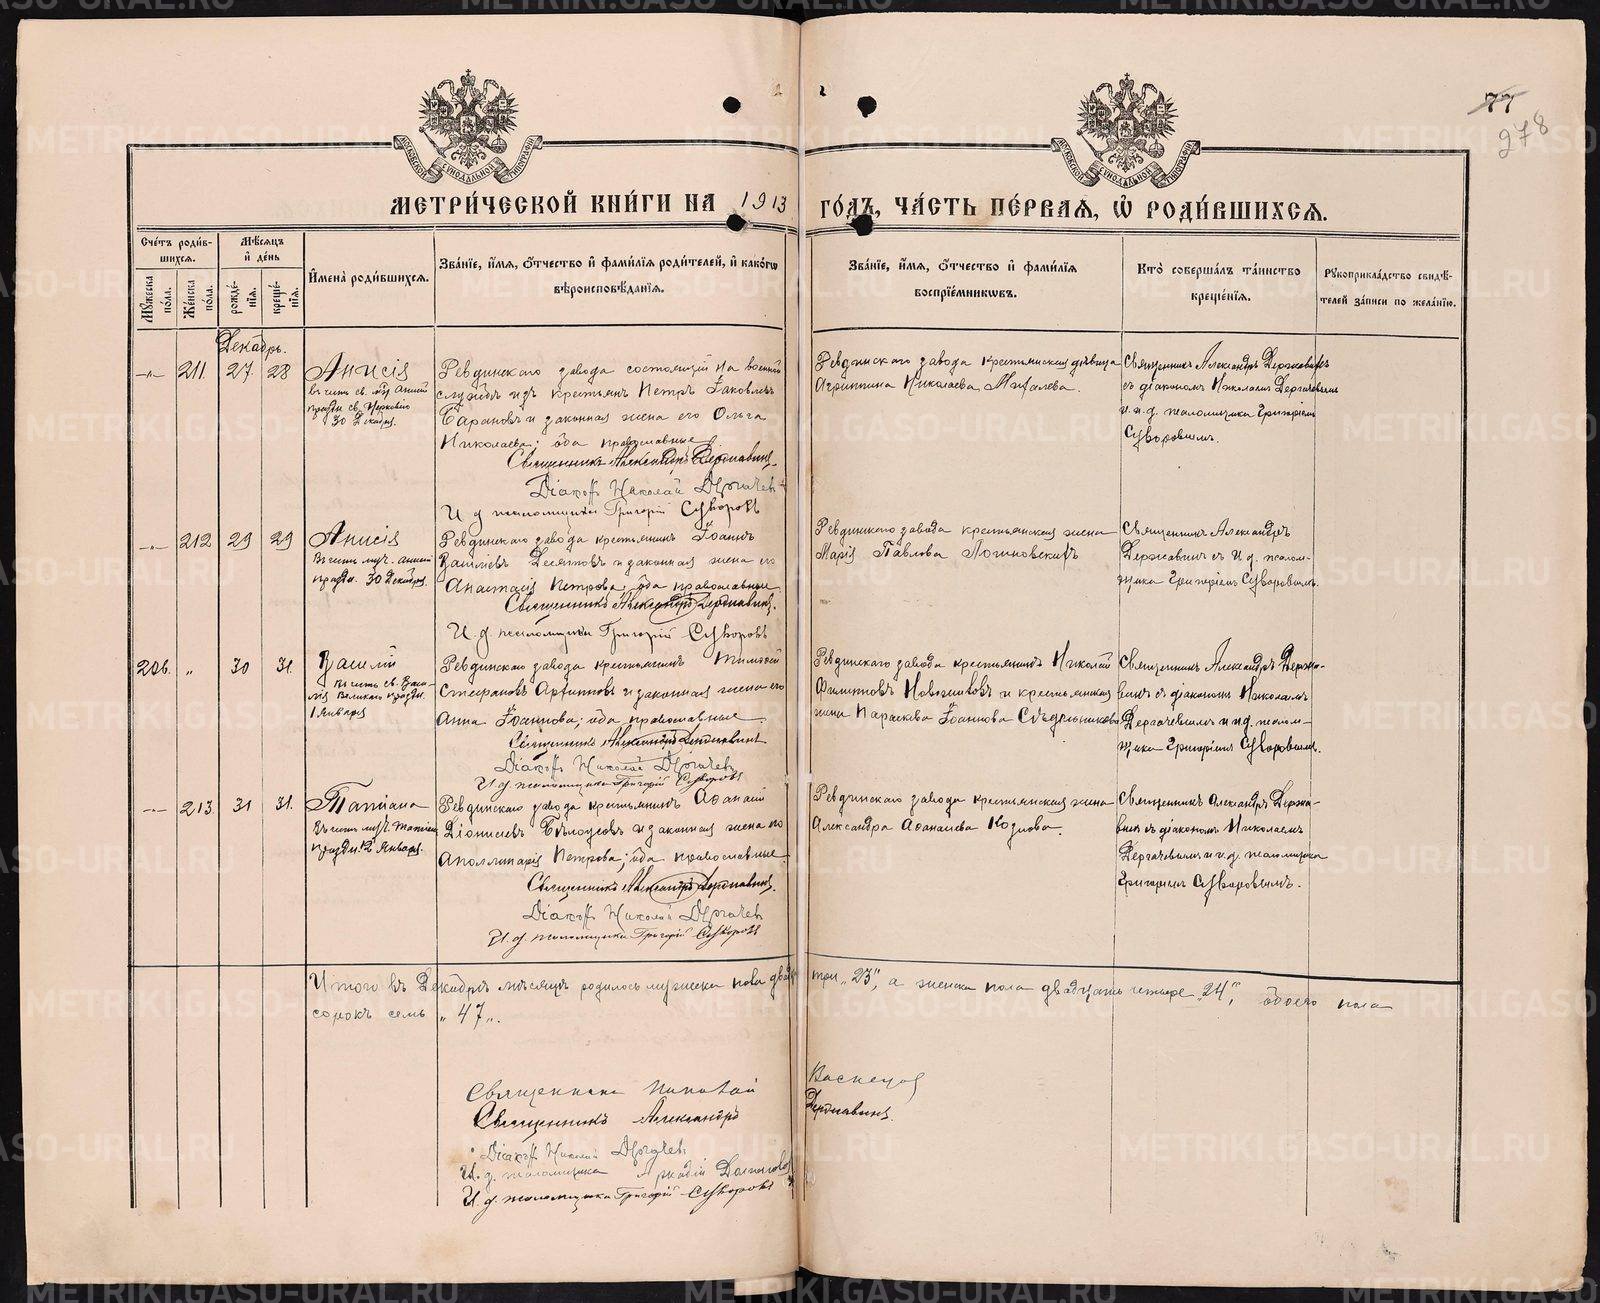 77
278
МОСКОВСКОЙ СѴНОДАЛЬНОЙ ТИПОГРАФІИ
МОСКОВСКОЙ СѴНОДАЛЬНОЙ ТИПОГРАФІИ
МЕТРИ́ЧЕСКОЙ КНИ́ГИ НА 1913 ГО́ДЪ, ЧА́СТЬ ПЕ́РВАЯ, Ѽ РОДИ́ВШИХСЯ.
Сче́тъ роди́вшихся.
Мѣ́сяцъ и҆ де́нь
Му́жеска по́ла.
Же́нска по́ла.
рожде́нїя.
креще́нїя.
И҆мена̀ роди́вшихся.
Зва́нїе, и҆́мя, ѻ҆́тчество и҆ фами́лїя роди́телей, и҆ како́гѡ вѣроисповѣ́данїя.
Зва́нїе, и҆́мя, ѻ҆́тчество и҆ фами́лїя воспрїе́мникѡвъ.
Кто̀ соверша́лъ та́инство креще́нїя.
Рꙋкоприкла́дство свидѣ́телей за́писи по жела́нїю.
Декабрь.
211. 27 28
Анисія
въ честь св. мц. Анисіи
праздн. св. Церковію
30 Декабря.
Ревдинскаго завода состоящій на военной
службѣ изъ крестьянъ Петръ Іаковлевъ
Барановъ и законная жена его Ольга
Николаева; оба православные
Священникъ Александръ Державинъ
Діаконъ Николай Дергачевъ
И. д. псаломщика Григорій Суворовъ
Ревдинскаго завода крестьянская дѣвица
Агриппина Николаева Михалева.
Священникъ Александръ Державинъ
съ діакономъ Николаемъ Дергачевымъ
и и. д. псаломщика Григоріемъ
Суворовымъ.
212 29 29
Анисія
въ честь муч. Анисіи
праздн. 30 Декабря.
Ревдинскаго завода крестьянинъ Іоаннъ
Василіевъ Десятовъ и законная жена его
Анастасія Петрова; оба православные.
Священникъ Александръ Державинъ.
И. д. псаломщика Григорій Суворовъ
Ревдинскаго завода крестьянская жена
Марія Павлова Логиновскихъ
Священникъ Александръ
Державинъ съ и. д. псалом-
щика Григоріемъ Суворовымъ.
206. „ 30 31.
Василій
въ честь св. Васи-
лія Великаго праздн.
1 Января
Ревдинскаго завода крестьянинъ Тимофей
Стефановъ и законная жена его
Анна Іоаннова; оба православные.
Священникъ Александръ Державинъ
Діаконъ Николай Дергачевъ
И. д. псаломщика Григорій Суворовъ
Ревдинскаго завода крестьянинъ Николай
Филипповъ и крестьянская
жена Параскева Іоаннова Сѣдельникова
Священникъ Александръ Держа-
винъ съ діакономъ Николаемъ
Дергачевымъ и и. д. псалом-
щика Григоріемъ Суворовымъ.
213. 31 31.
Татіана
въ честь муч. Татіаны
праздн. 12 Января.
Ревдинскаго завода крестьянинъ Аѳанасій
Діонисіевъ Бѣлоусовъ и законная жена его
Аполлинарія Петрова; оба православные.
Священникъ Александръ Державинъ.
Діаконъ Николай Дергачевъ
И. д. псаломщика Григорій Суворовъ
Ревдинскаго завода крестьянская жена
Александра Аѳанасіева Козлова.
Священникъ Александръ Держа-
винъ съ діакономъ Николаемъ
Дергачевымъ и и. д. псаломщика
Григоріемъ Суворовымъ.
Итого въ Декабрѣ мѣсяцѣ родилось мужеска пола двадцать три „23“, а женска пола двадцать четыре „24“, обоего пола
сорокъ семь „47“.
Священникъ Николай Васнецов
Священникъ Александръ Державинъ
Діаконъ Николай Дергачевъ
И. д. псаломщика Аркадій
И. д. псаломщика Григорій Суворовъ
METRIKI.GASO-URAL.RU